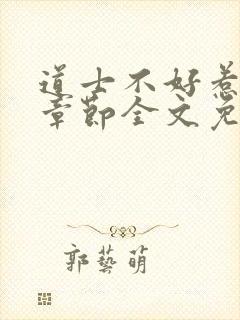 道士不好惹
章節全文免
郭藝萌